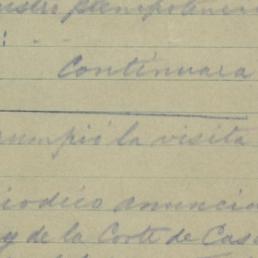 plenipotencia
:
Continuara
rumpió la visita
riodico anuncia
y de la Corte de Cas